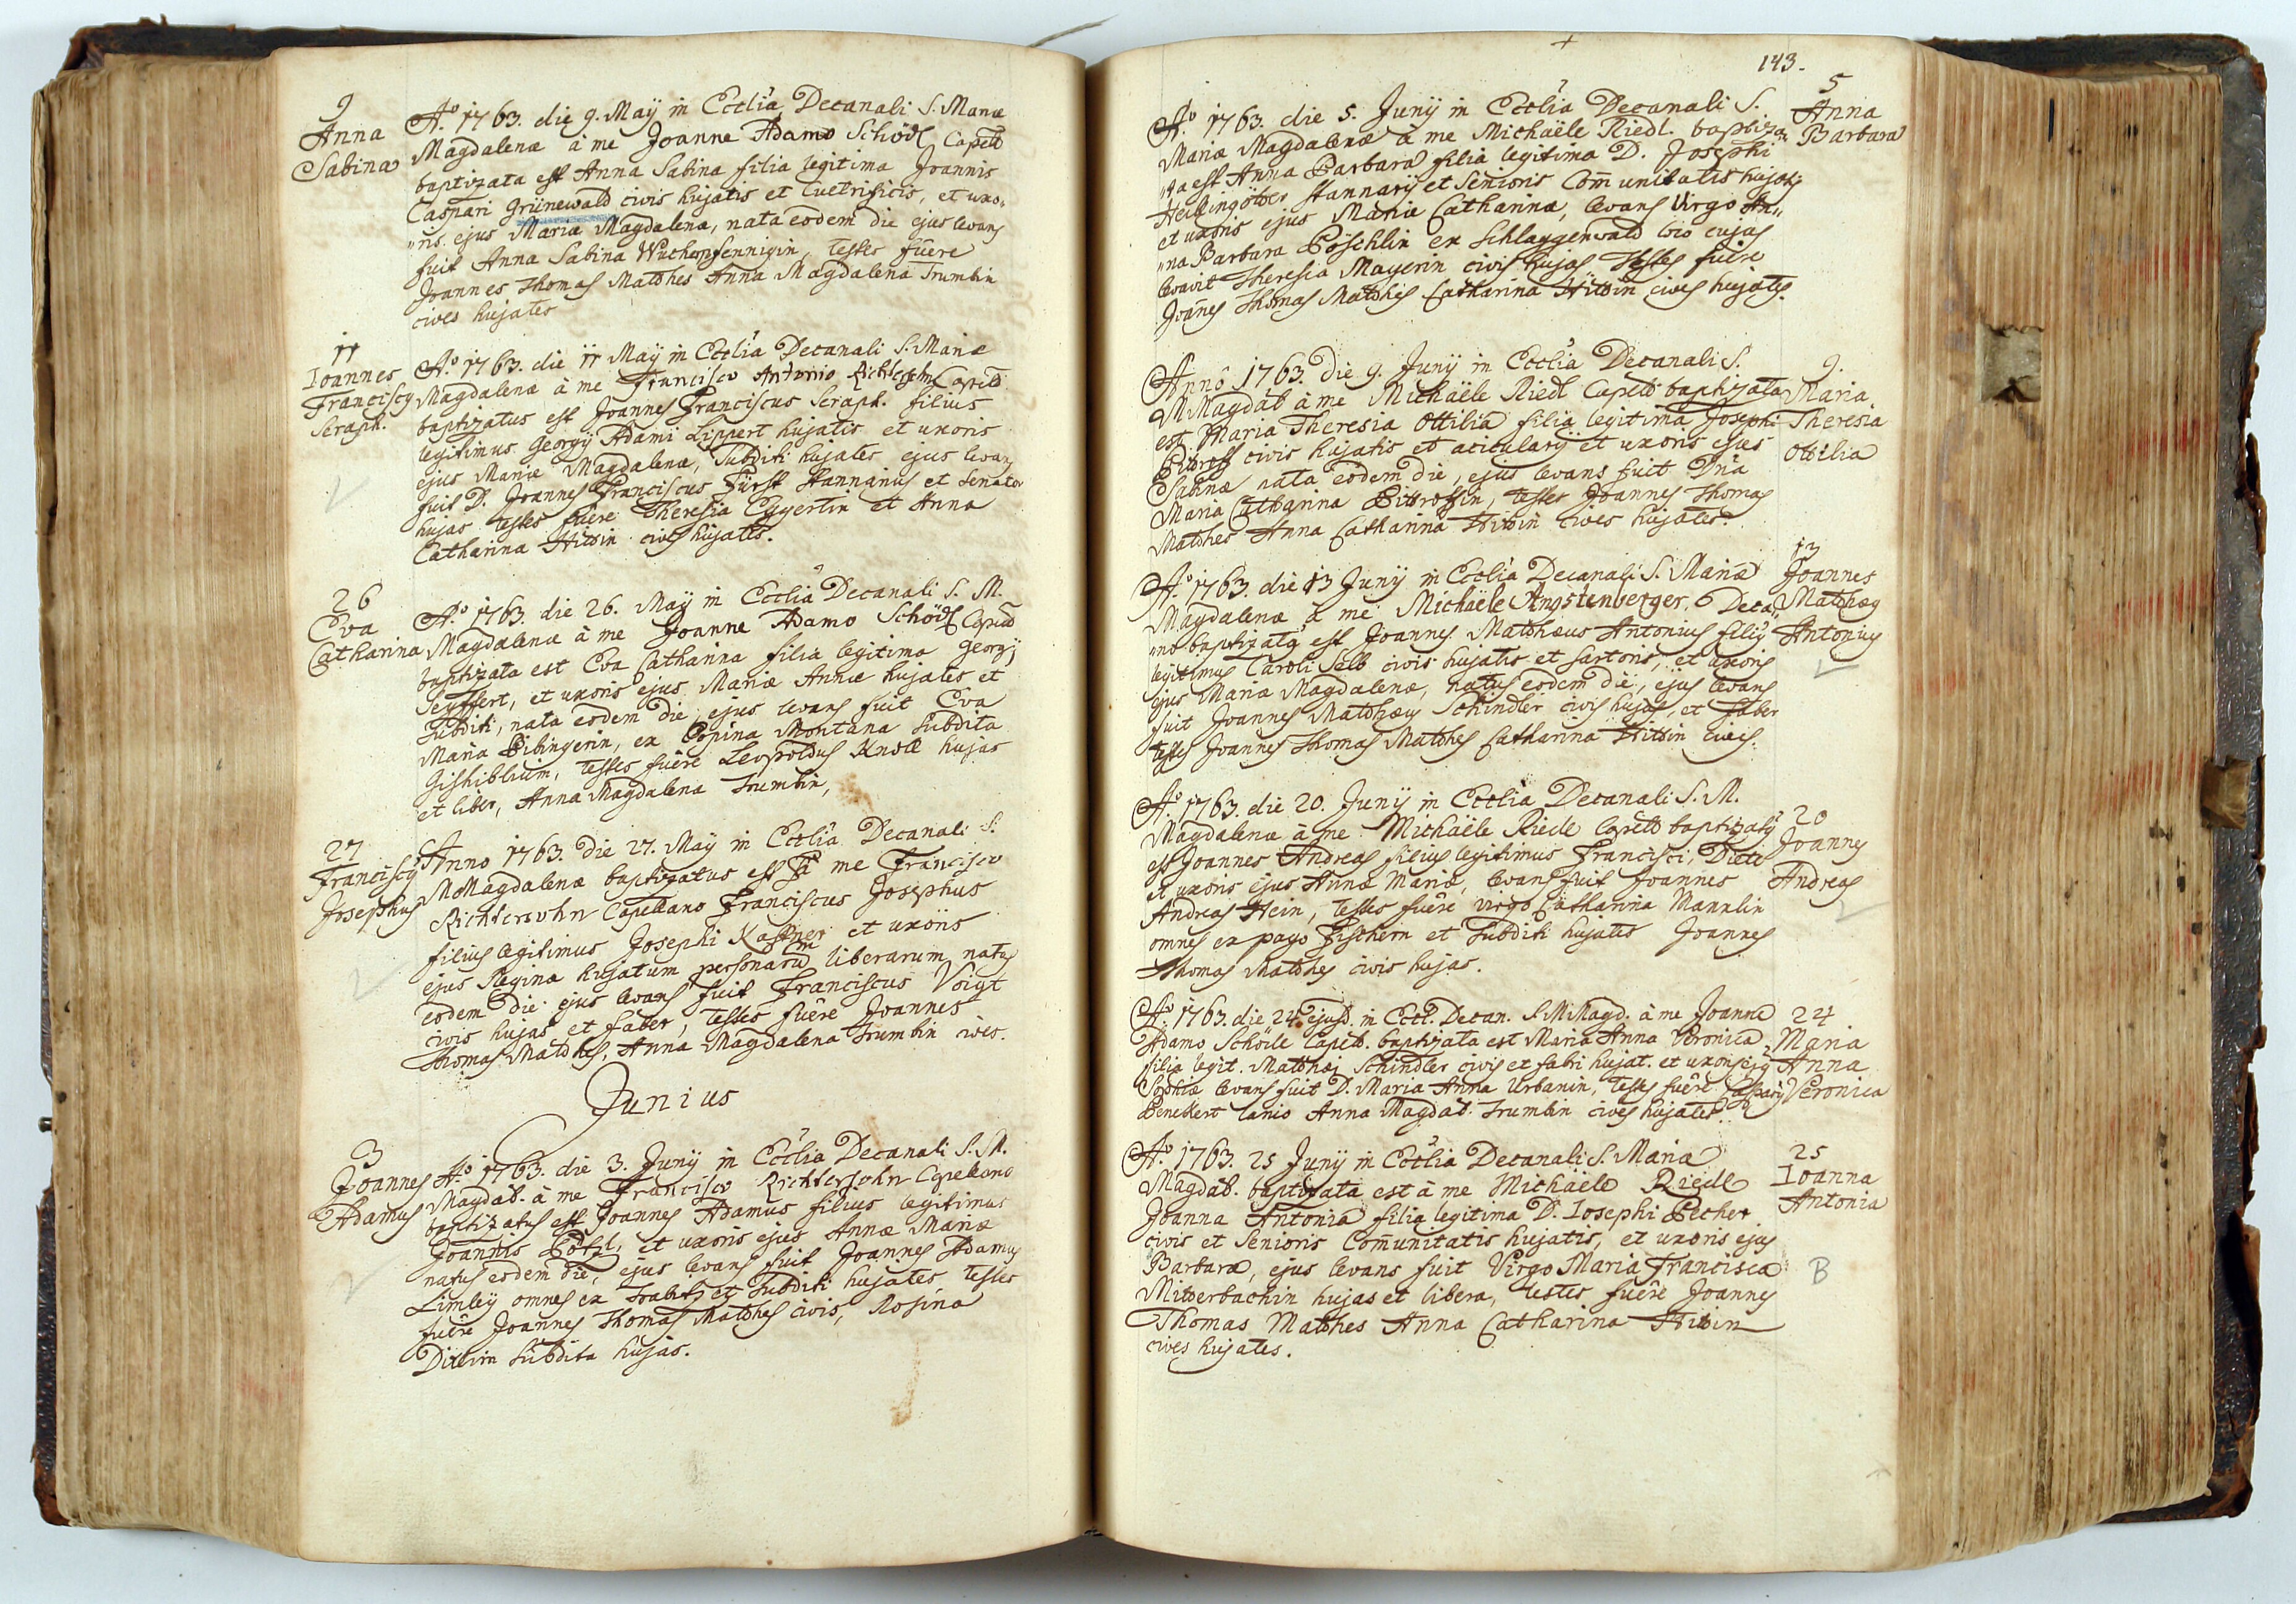 9
Anna
Sabina
Aº 1763. die 9. Maÿ in Ecclia Decanali S. Mariæ
Magdalenæ à me Joanne Adamo Schödl Capell
baptizata est Anna Sabina filia legitima Joannis
Caspari Grünewald civis hujatis et , et uxo„
„ris ejus Mariæ Magdalenæ, nata eodem die ejus levans
fuit Anna Sabina Wucherpfennigin, testes fuêre
Joannes Thomas Matthes Anna Magdalena Trumlin
cives hujates
11
Ioannes
Franciscg
Seraph.
Aº 1763. die 11 Maÿ in Ecclia Decanali S. Mariæ
Magdalenæ à me Francisco Antonio Richtersohn Capell
baptizatus est Joannes Franciscus Seraph. filius
legitimus Georgÿ Adami Lippert hujatis et uxoris
ejus Mariæ Magdalenæ, Subditi hujates ejus levans
fuit D. Joannes Franciscus Fürst Stannarius et Senator
hujas testes fuêre Theresia Eggertin et Anna
Catharina Hittin cives hujates.
26
Eva
Catharina
Aº 1763. die 26. Maÿ in Ecclia Decanali S. M.
Magdalenæ à me Joanne Adamo Schödl Capell
baptizata est Eva Catharina filia legitima Georgÿ
Seyffert, et uxoris ejus Mariæ Annæ hujates et
Subditi, nata eodem die, ejus levans fuit Eva
Maria Bibingerin, ex Copina Montana Subdita
, testes fuêre Leopoldus Knoll hujas
et liber, Anna Magdalena Trumlin,
27
Franciscg
Josephus
Anno 1763. die 27. Maÿ in Ecclia Decanali S.
M Magdalenæ baptizatus est à me Francisco
Richtersohn Capellano Franciscus Josephus
filius legitimus Josephi Kastner et uxoris
ejus Reginæ hujatum personarum liberarum natus
eodem die ejus levans fuit Franciscus Voigt
civis hujas et faber, testes fuêre Joannes
Thomas Matthes, Anna Magdalena Trumlin cives.
Junius
3
Joannes
Adamus
Aº 1763. die 3. Junÿ in Ecclia Decanali S. M.
Magdal. à me Francisco Richtersohn Capellano
baptizatus est Joannes Adamus filius legitimus
Joannis Pötzl, et uxoris ejus Annæ Mariæ
natus eodem die, ejus levans fuit Joannes Adamus
Limleÿ omnes ex et Subditi hujates testes
fuêre Joannes Thomas Matthes civis, Rosina
Subdita hujas.
143.
5
Anna
Barbara
Aº 1763. die 5. Junÿ in Ecclia Decanali S.
Mariæ Magdalenæ à me Michaële Riedl. baptiza„
„ta est Anna Barbara filia legitima D. Josephi
Heilingötter Stannarÿ et Senioris Com̄unitatis hujatis
et uxoris ejus Mariæ Catharinæ, levans Virgo An„
„na Barbara Pöschlin ex Schlaggenwald vio cujas
levavit Theresia Mayerin civis hujas Testes fuêre
Joañes Thomas Matthes Catharina Hittin cives hujates.
9.
Maria
Theresia
Ottilia
Anno 1763. die 9. Junÿ in Ecclia Decanali S.
M Magdal à me Michaële Riedl Capell baptizata
est Maria Theresia Ottilia filia legitima Josephi
Pittroff civis hujatis et acicularÿ et uxoris ejus
Sabinæ nata eodem die, ejus levans fuit Dña
Maria Catharina Pittroffin, testes Joannes Thomas
Matthes Anna Catharina Hittin cives hujates.
13
Joannes
Matthæg
Antonius
Aº 1763. die 13 Junÿ in Ecclia Decanali S. Mariæ
Magdalenæ à me Michaële Angstenberger Deca„
„no baptizatg est Joannes Matthæus Antonius filig
legitimus Caroli Selb civis hujatis et Sartoris, et uxoris
ejus Mariæ Magdalenæ, natus eodem die, ejus levans
fuit Joannes Matthæus Schindler civis hujas, et faber
testes Joannes Thomas Matthes Catharina Hittin cives.
20
Joannes
Andreas
Aº 1763. die 20. Junÿ in Ecclia Decanali S. M.
Magdalenæ à me Michaële Riedl Capell baptizatg
est Joannes Andreas filius legitimus Francisci
et uxoris ejus Annæ Mariæ, levans fuit Joannes
Andreas Hein, testes fuêre virgo Catharina Mannlin
omnes ex pago Fisthern et Subditi hujates Joannes
Thomas Matthes civis hujas.
24
Maria
Anna
Veronica
Aº 1763. die 24 ejusd. in Eccl. Decan. S. M Magd. à me Joanne
Adamo Schödl Capell. baptizata est Maria Anna Veronica
filia legit. Matthæi Schindler civis et fabri hujat. et uxoris ejg
Sophiæ levans fuit D. Maria Anna Urbanin, testes fuêre Casparg
Benekert lanio Anna Magdal. Trumlin cives hujates.
25
Ioanna
Antonia
B
Aº 1763. 25 Junÿ in Ecclia Decanali S. Mariæ
Magdal. baptizata est à me Michaële Riedl
Joanna Antonia filia legitima D. Iosephi Becher
civis et Senioris Com̄unitatis hujatis, et uxoris ejus
Barbaræ, ejus levans fuit Virgo Maria Francisca
Mitterbachin hujas et libera, testes fuêre Joannes
Thomas Matthes Anna Catharina Hittin
cives hujates.